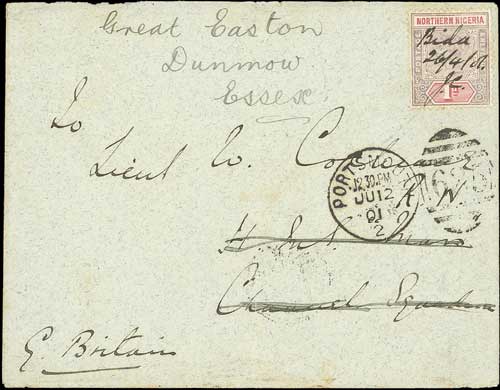 Great Easton
Dunmow
Essex
NORTHERN NIGERIA
Bida
26/4/01.
To
Lieut W.
R N
PORTSMOUTH
12.30 PM
JU 12
01
2
H.M.S. Mars
Channel Squadron
G. Britain